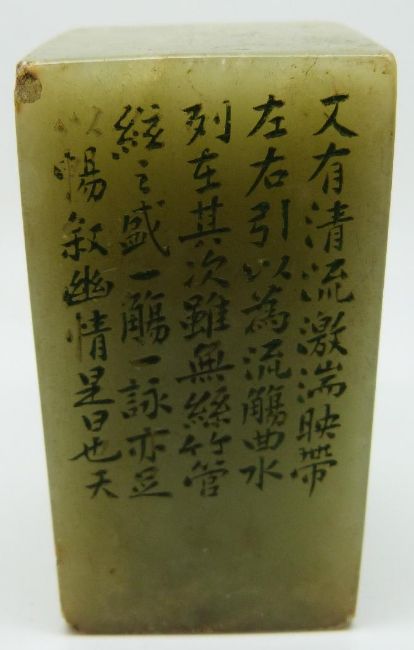 又有清流激湍映帶
左右引以為流觴曲水
列在其次雖無絲竹管
絃之盛一觴一詠亦足
以暢叙幽情是日也天